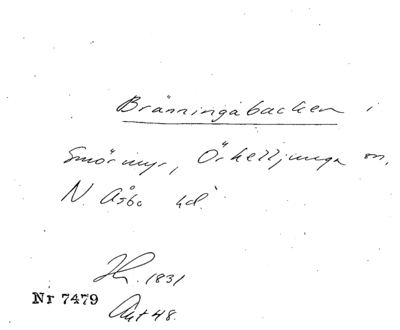 Bränningabacken i
Smörmyr, Örkelljunga sn,
N. Åsbo hd.
1831
Nr 7479
Akt 48.